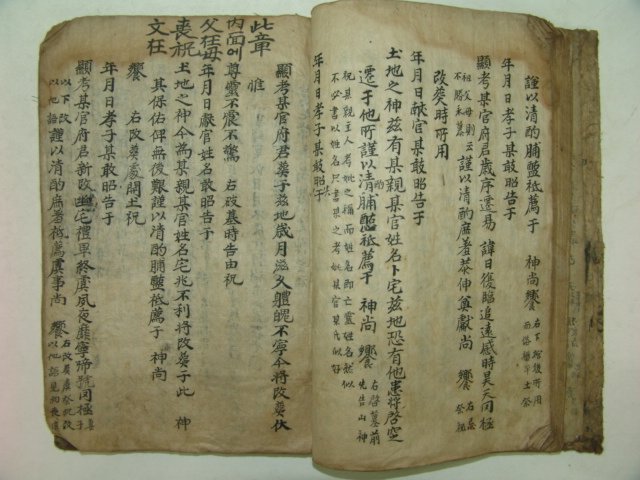 謹以清酌脯醢祗薦于　神尚　饗
年月日孝子某敢昭告于
顯考某官府君歲序遷易　諱日復臨追遠感時昊天罔極
謹以清酌庶羞恭伸奠獻尚　饗
改葬時所用
年月日獻官姓名敢昭告于
土地之神玆有某親某官姓名卜宅玆地恐有他患將啓窆
遷于他所謹以清酌脯醢祗薦于　神尚　饗
年月日孝子某敢昭告于
顯考某官府君葬于玆地歲月滋久體魄不寧今將改葬伏
惟
尊靈不震不驚　右改墓時告由祝
年月日獻官姓名敢昭告于
土地之神今爲某親某官姓名宅兆不利將改葬于此　神
其保佑俾無後艱謹以清酌脯醢祗薦于　神尚
饗　右改葬處開土祝
年月日孝子某敢昭告于
顯考某官府君新改幽宅禮畢終虞夙夜靡寧啼號罔極
謹以清酌庶羞祗薦虞事尚　饗
此章
內面에
父在母
喪祝
文在